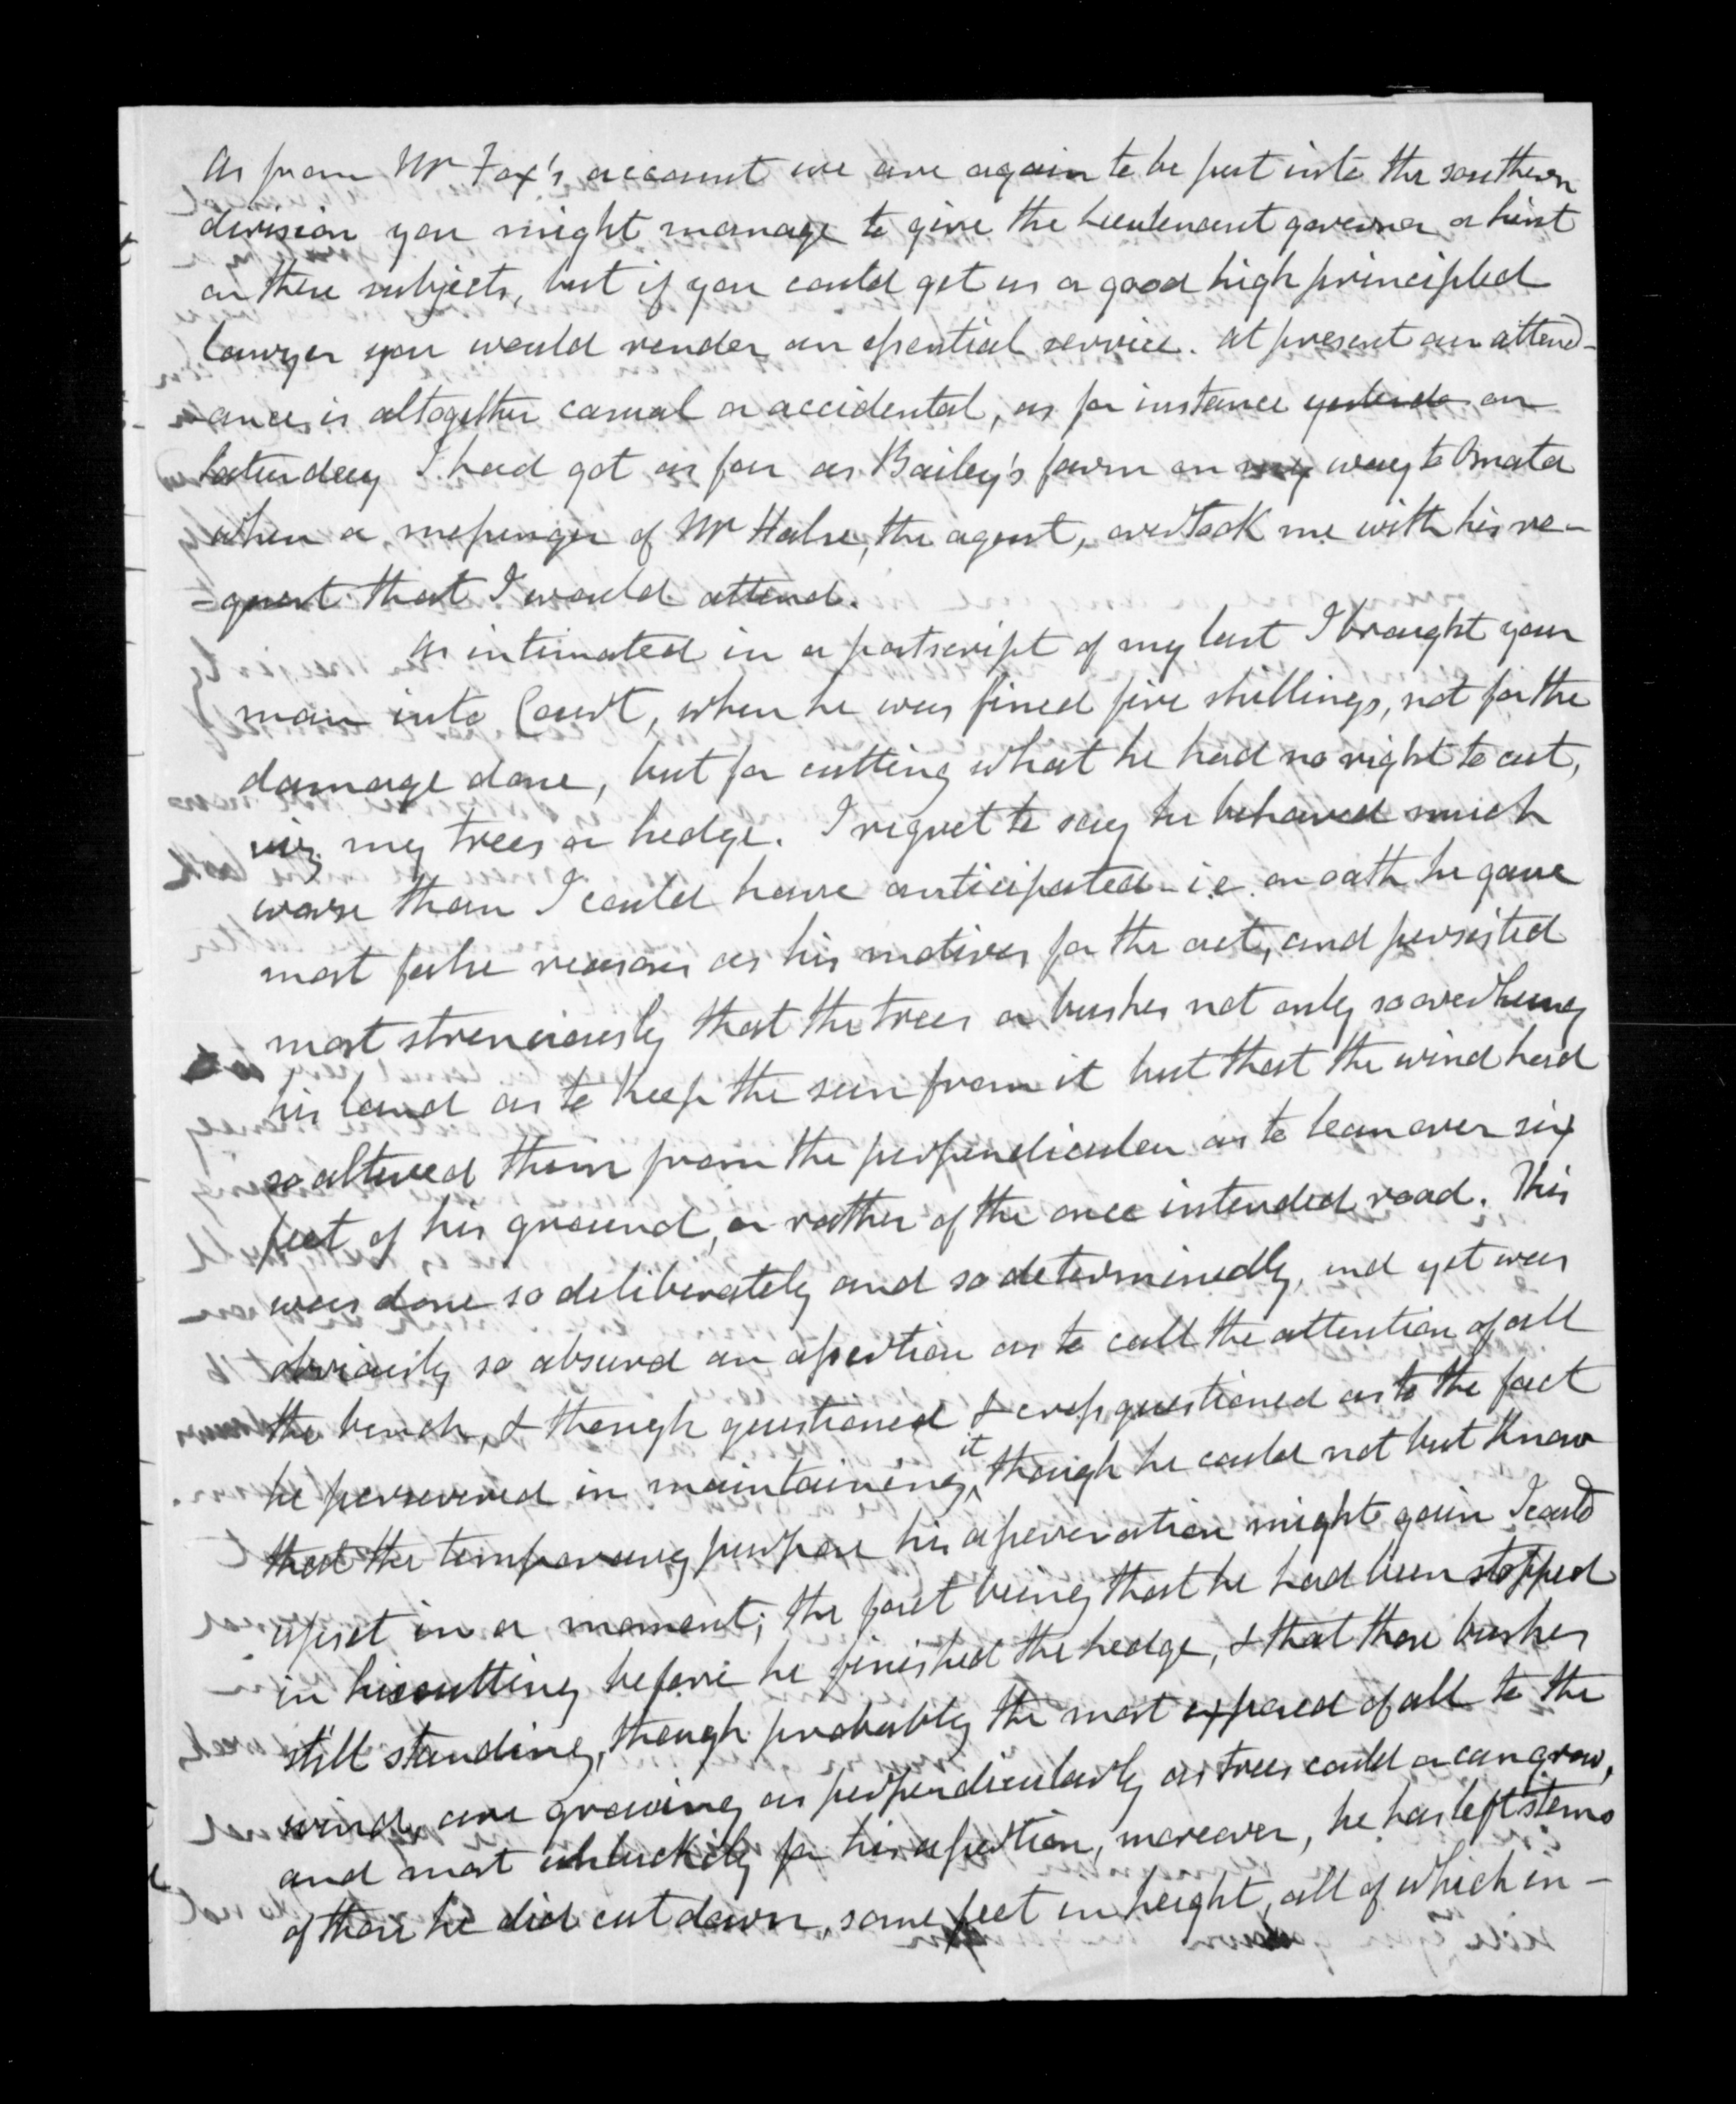 As from Mr Fox's account we are again to be put into the southern
division you might manage to give the Lieutenant governor a hint
on these subjects, but if you could get us a good high principled
lawyer you would render an essential service. At present our attend-
-ance is altogether casual or accidental, as for instance yesterda on
Saturday I had got as far as Bailey's farm on my way to Omata
when a messenger of Mr Halse, the agent, overtook me with his re-
-quest that I would attend.
As intimated in a postscript of my last I brought your
man into Court, when he was fined five shillings, not for the
damage done, but for cutting what he had no right to cut,
viz my trees or hedge. I regret to say he behaved much
worse than I could have anticipated - i.e. on oath he gave
most false reasons as his motives for the act, and persisted
most strenuously that the trees or bushes not only so overhung
his land as to keep the sun from it but that the wind had
so altered them from the perpendicular as to lean over six
feet of his ground, or rather of the once intended road. This
was done so deliberately and so determinedly, and yet was
obviously so absurd an assertion as to call the attention of all
the bench, & though questioned & cross questioned as to the fact
he persevered in maintaining it, though he could not but know
that the temporary purpose his asseveration might gain I could
upset in a moment; the fact being that he had been stopped
in his cutting before he finished the hedge, & that those bushes
still standing, though probably the most exposed of all to the
wind, are growing as perpendicularly as trees could or can grow,
and most unluckily for his assertion, moreover, he has left stems
of those he did cut down, some feet in height, all of which in-